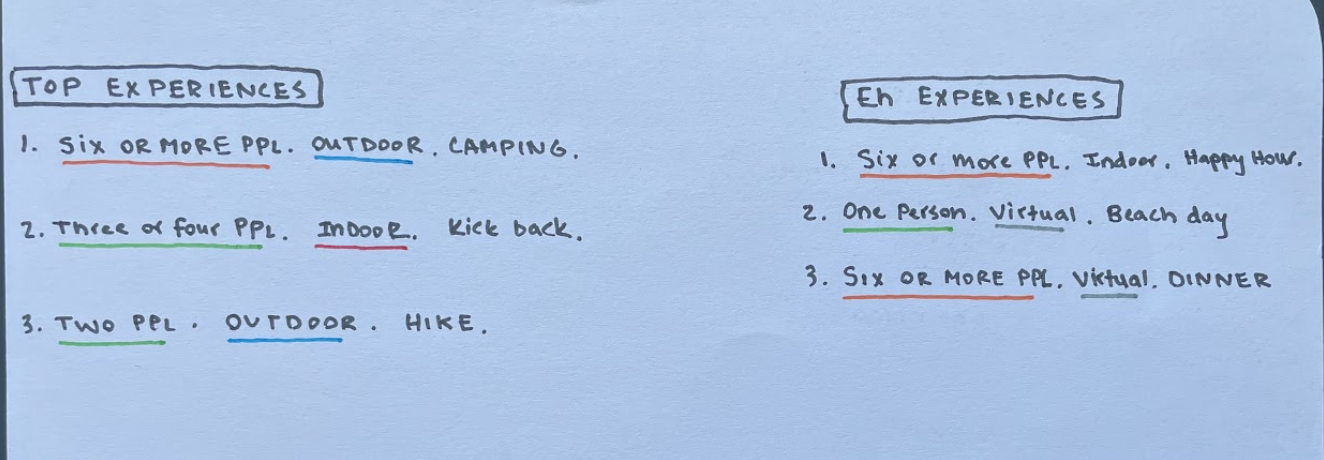 TOP EXPERIENCES
1. SiX OR MORE PPL. OUTDOOR. CAMPING.
2. Three or four PPL. INDOOR. Kick back.
3. TWO PPL. OUTDOOR. HIKE.
Eh EXPERIENCES
1. Six or more PPL. Indoor. Happy Hour.
2. One Person. Virtual. Beach day
3. SIX OR MORE PPL. Virtual. DINNER